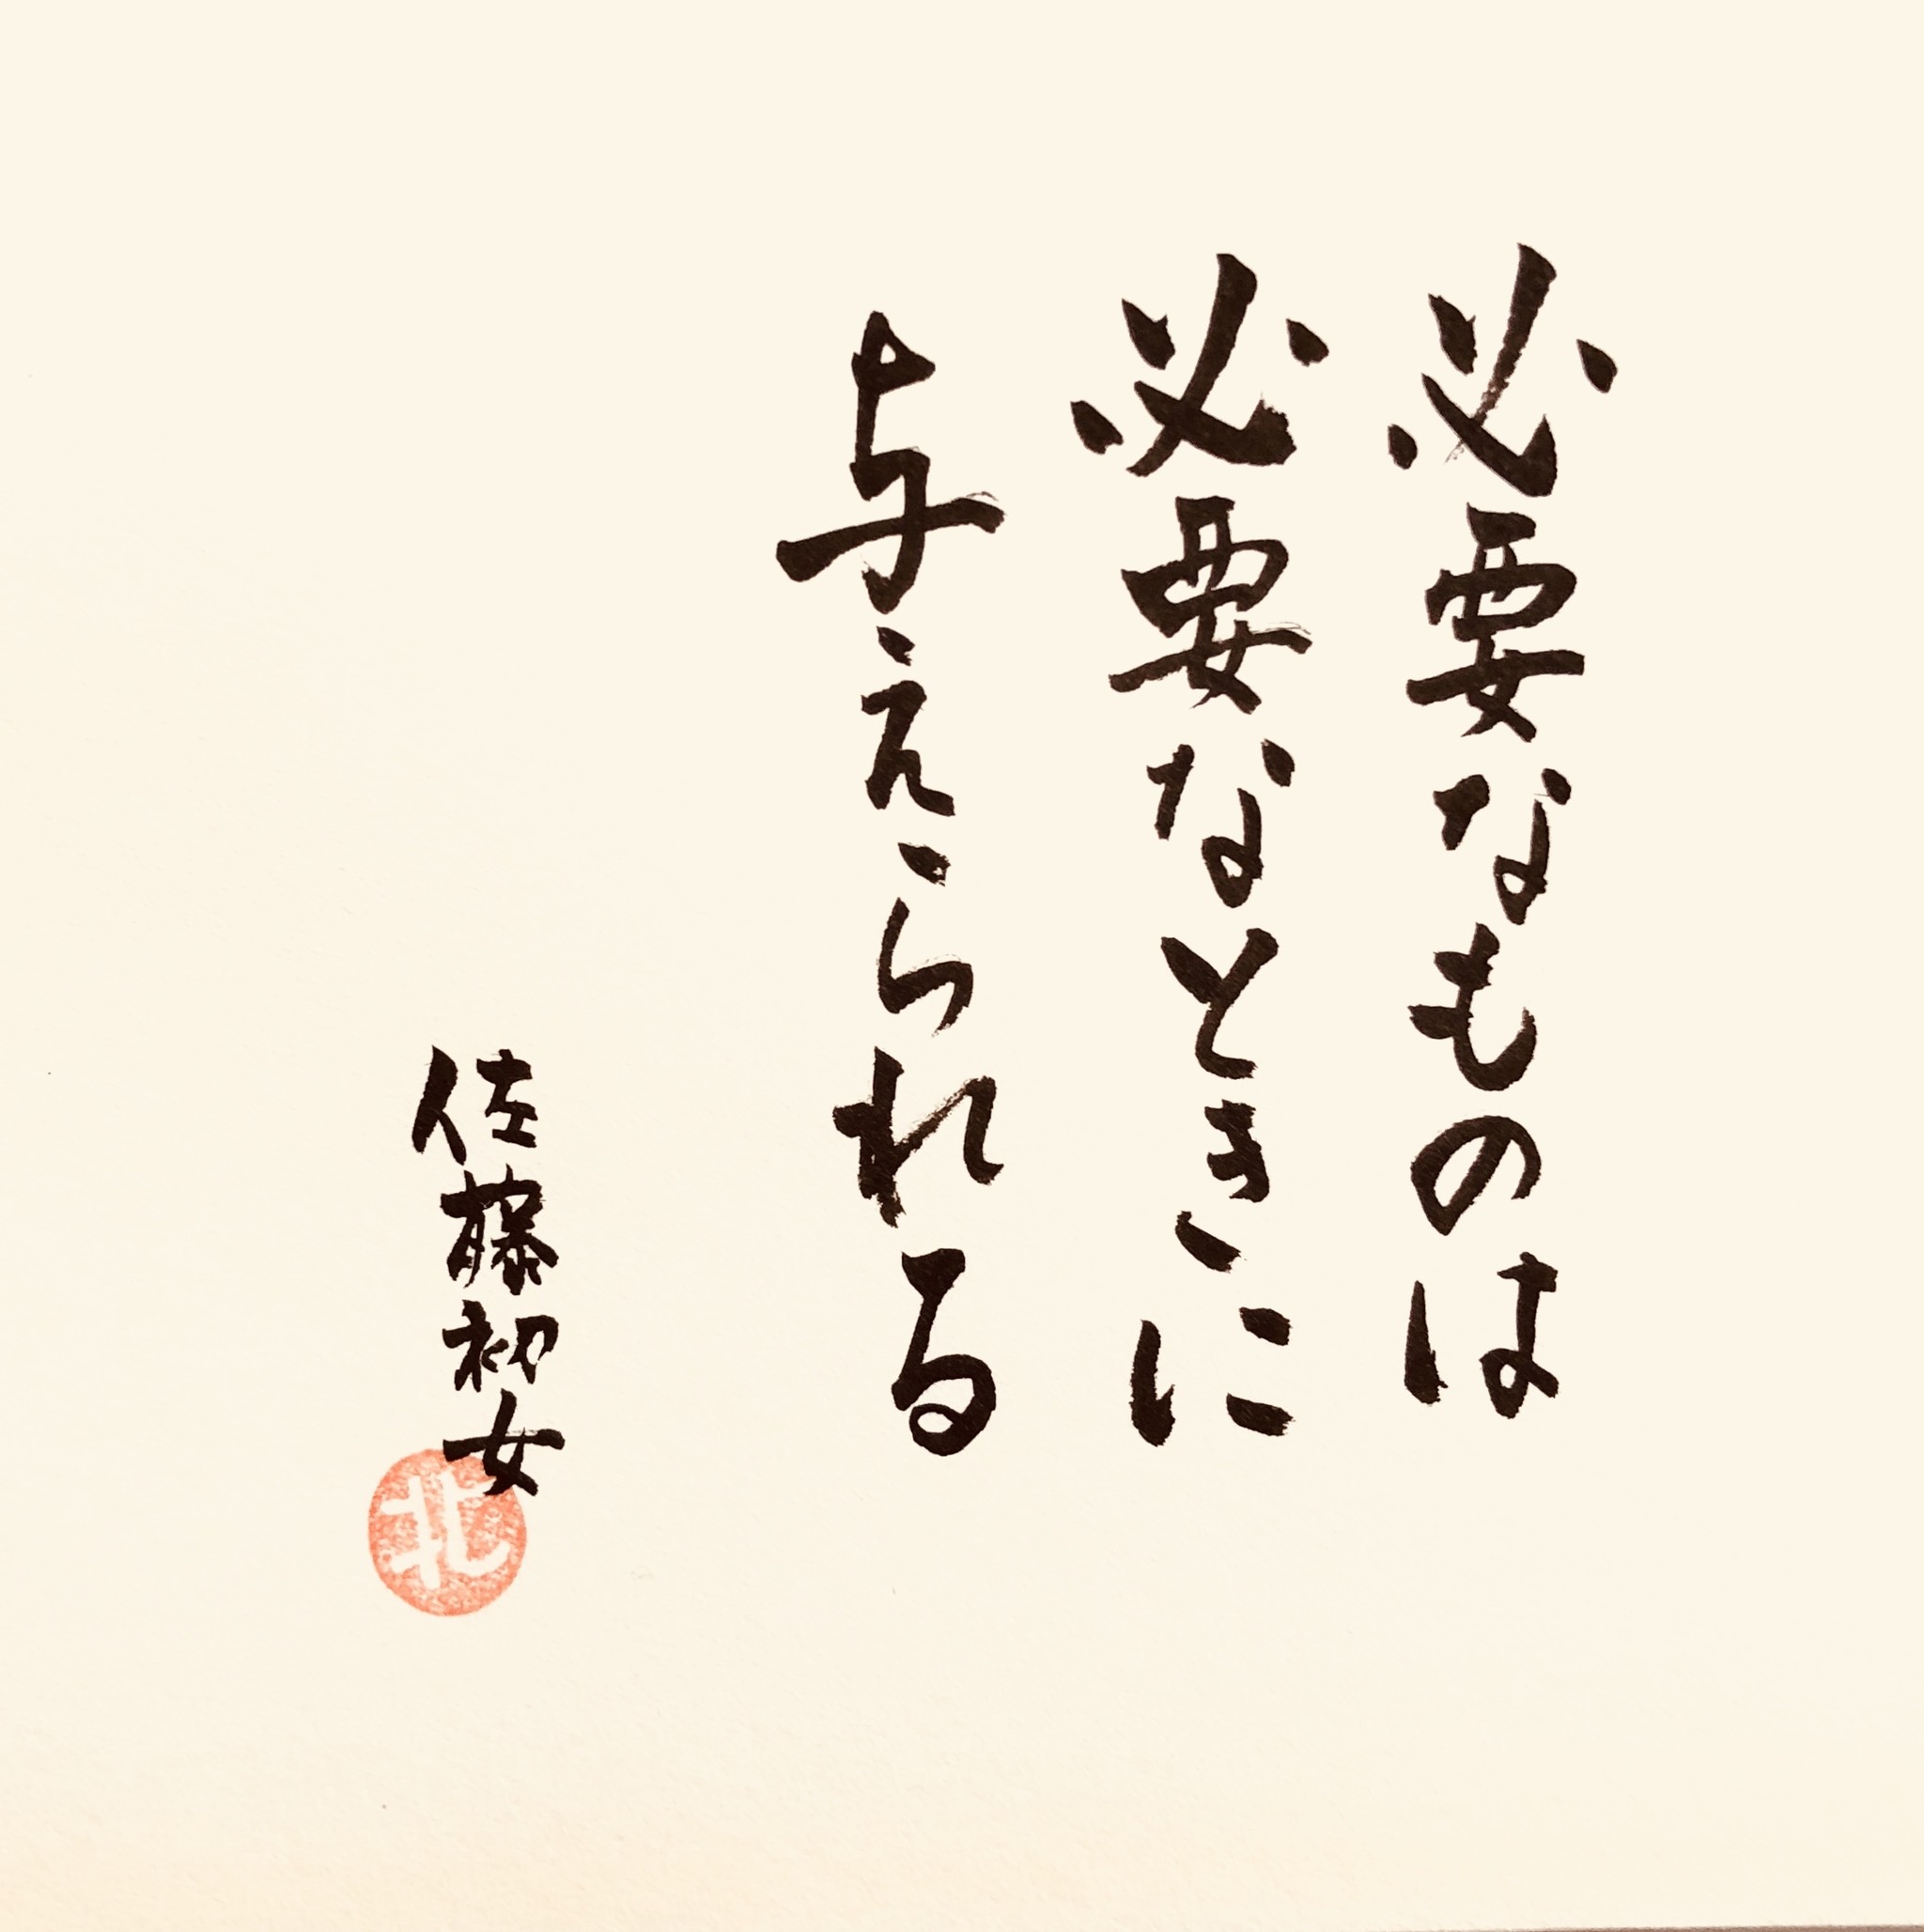 必要なものは
必要なときに
与えられる
佐藤初女
北